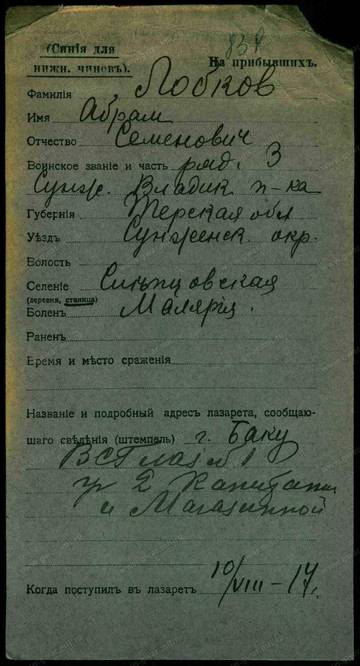 838
(Синія для
нижн. чиновъ).
На прибывшихъ.
Фамилія Лобков
Имя Абрам
Отчество Семенович
Воинское званіе и часть ряд. 3
Сунж. Владик п-ка
Губернія Терская обл
Уѣздъ Сунженск окр.
Волость
Селеніе Слѣпцовская
(деревня, станица)
Боленъ Малярия
Раненъ
Время и мѣсто сраженія
Названіе и подробный адресъ лазарета, сообщаю-
щаго свѣдѣнія (штемпель) г. Баку
ВСГ лаз № 1
2
и Магазинной
Когда поступилъ въ лазаретъ 10/VIII-17 г.